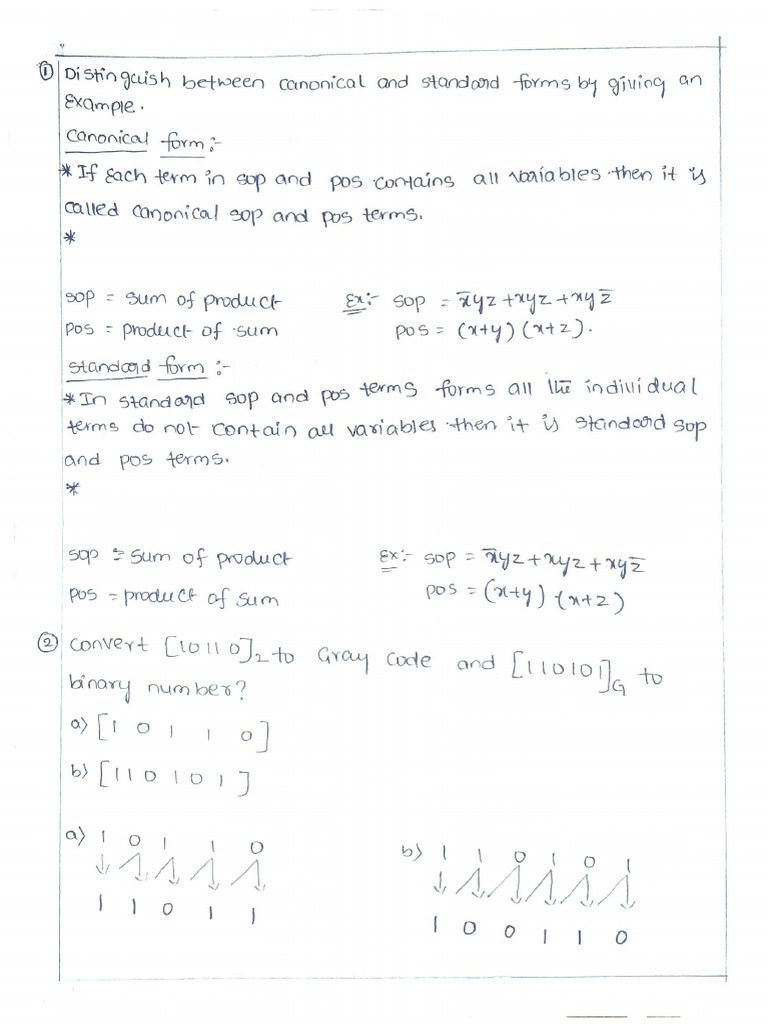 ① Distinguish between canonical and standard forms by giving an
Example.
Canonical form :-
* If Each term in sop and pos contains all variables then it is
called canonical sop and pos terms.
*
sop = sum of product Ex:- sop = x̅yz + xyz + xyz̅
pos = product of sum pos = (x+y) (x+z).
standard form :-
* In standard sop and pos terms forms all the individual
terms do not contain all variables then it is standard sop
and pos terms.
*
sop = sum of product Ex:- sop = x̅yz + xyz + xyz̅
pos = product of sum pos = (x+y) (x+z)
② Convert [10110]₂ to Gray code and [110101]G to
binary number?
a) [1 0 1 1 0]
b) [110101]
a) 1 0 1 1 0 b) 1 1 0 1 0 1
1 1 0 1 1 1 0 0 1 1 0